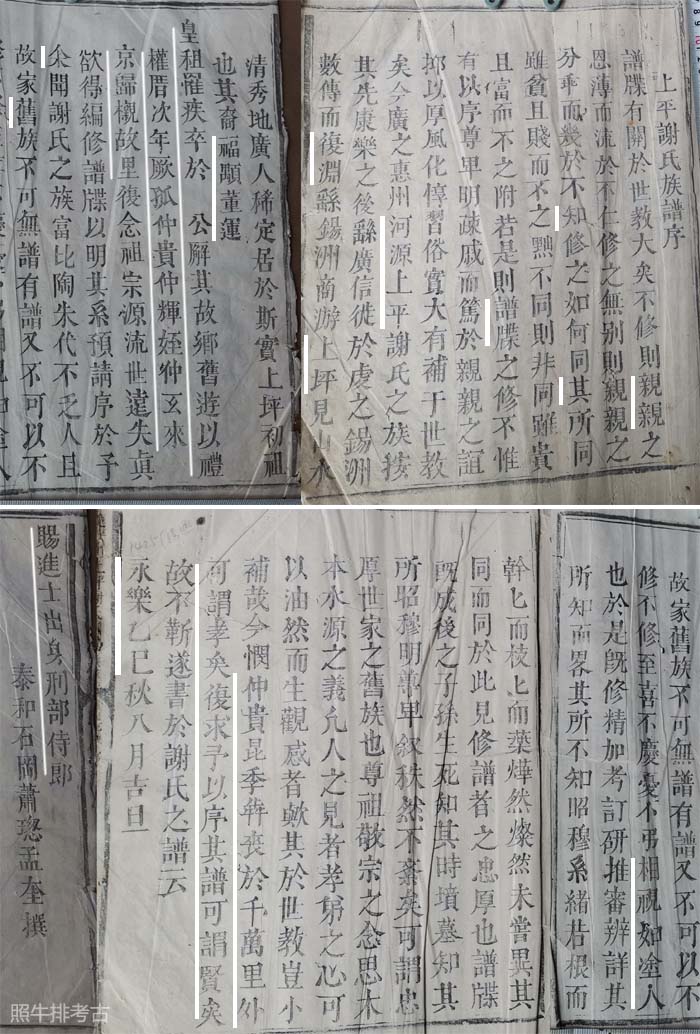 上平謝氏族譜序
譜牒有關於世教大矣不修則親親之
恩薄而流於不仁修之無别則親親之
分乖而幾於不知修之如何同其所同
雖貧且賤而不之黜不同則非同雖貴
且富而不之附若是則譜牒之修不惟
有以序尊卑明疎戚而篤於親親之誼
抑以厚風化惇習俗實大有補于世教
矣今廣之惠州河源上平謝氏之族按
其先康樂之後繇廣信徙於虔之錫洲
數傳而復淵繇錫洲南游上坪見山水
清秀地廣人稀定居於斯實上坪初祖
也其裔福顒董運
皇祖罹疾卒於 公廨其故鄉舊遊以禮
權厝次年厥孤仲貴仲輝姪仲玄來
京歸櫬故里復念祖宗源流世遠失眞
欲得編修譜牒以明其系預請序於予
余聞謝氏之族富比陶朱代不乏人且
故家舊族不可無譜有譜又不可以不
故家舊族不可無譜有譜又不可以不
修不修至喜不慶憂不弔相視如塗人
也於是旣修精加考訂研推審辨詳其
所知而畧其所不知昭穆系緒若根而
幹匕而枝匕而葉燁然燦然未嘗異其
同而同於此見修譜者之忠厚也譜牒
旣成後之子孫生死知其時墳墓知其
所昭穆明尊卑叙秩然不紊矣可謂忠
厚世家之舊族也尊祖敬宗之念思木
本水源之義凢人之見者孝弟之心可
以油然而生觀感者歟其於世教豈小
補哉今憫仲貴昆季犇喪於千萬里外
可謂孝矣復求予以序其譜可謂賢矣
故不靳遂書於謝氏之譜云
永樂乙巳秋八月吉旦
賜進士出身刑部侍郎
泰和石岡蕭璁孟奎撰
照牛排考古